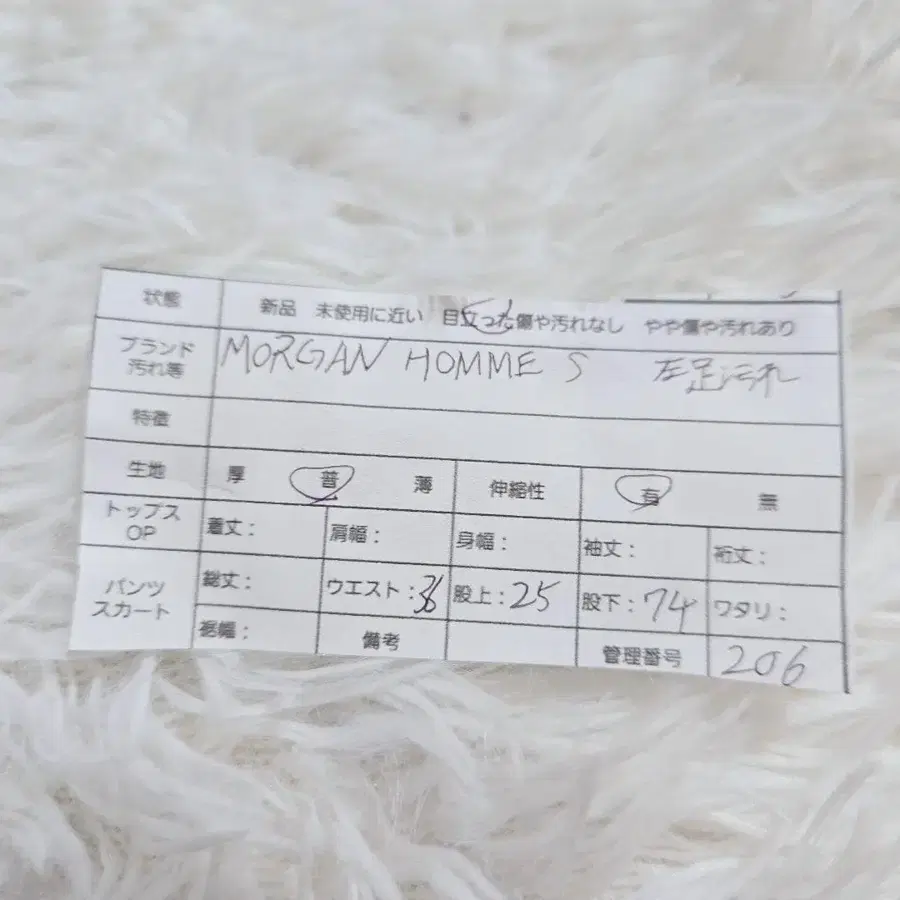 状態 新品 未使用に近い 目立った傷や汚れなし やや傷や汚れあり
ブランド
汚れ等 MORGAN HOMME S 左足汚れ
特徴
生地 厚 普 薄 伸縮性 有 無
トップス
OP 着丈: 肩幅: 身幅: 袖丈: 裄丈:
パンツ
スカート 総丈: ウエスト:36 股上:25 股下:74 ワタリ:
裾幅: 備考 管理番号 206